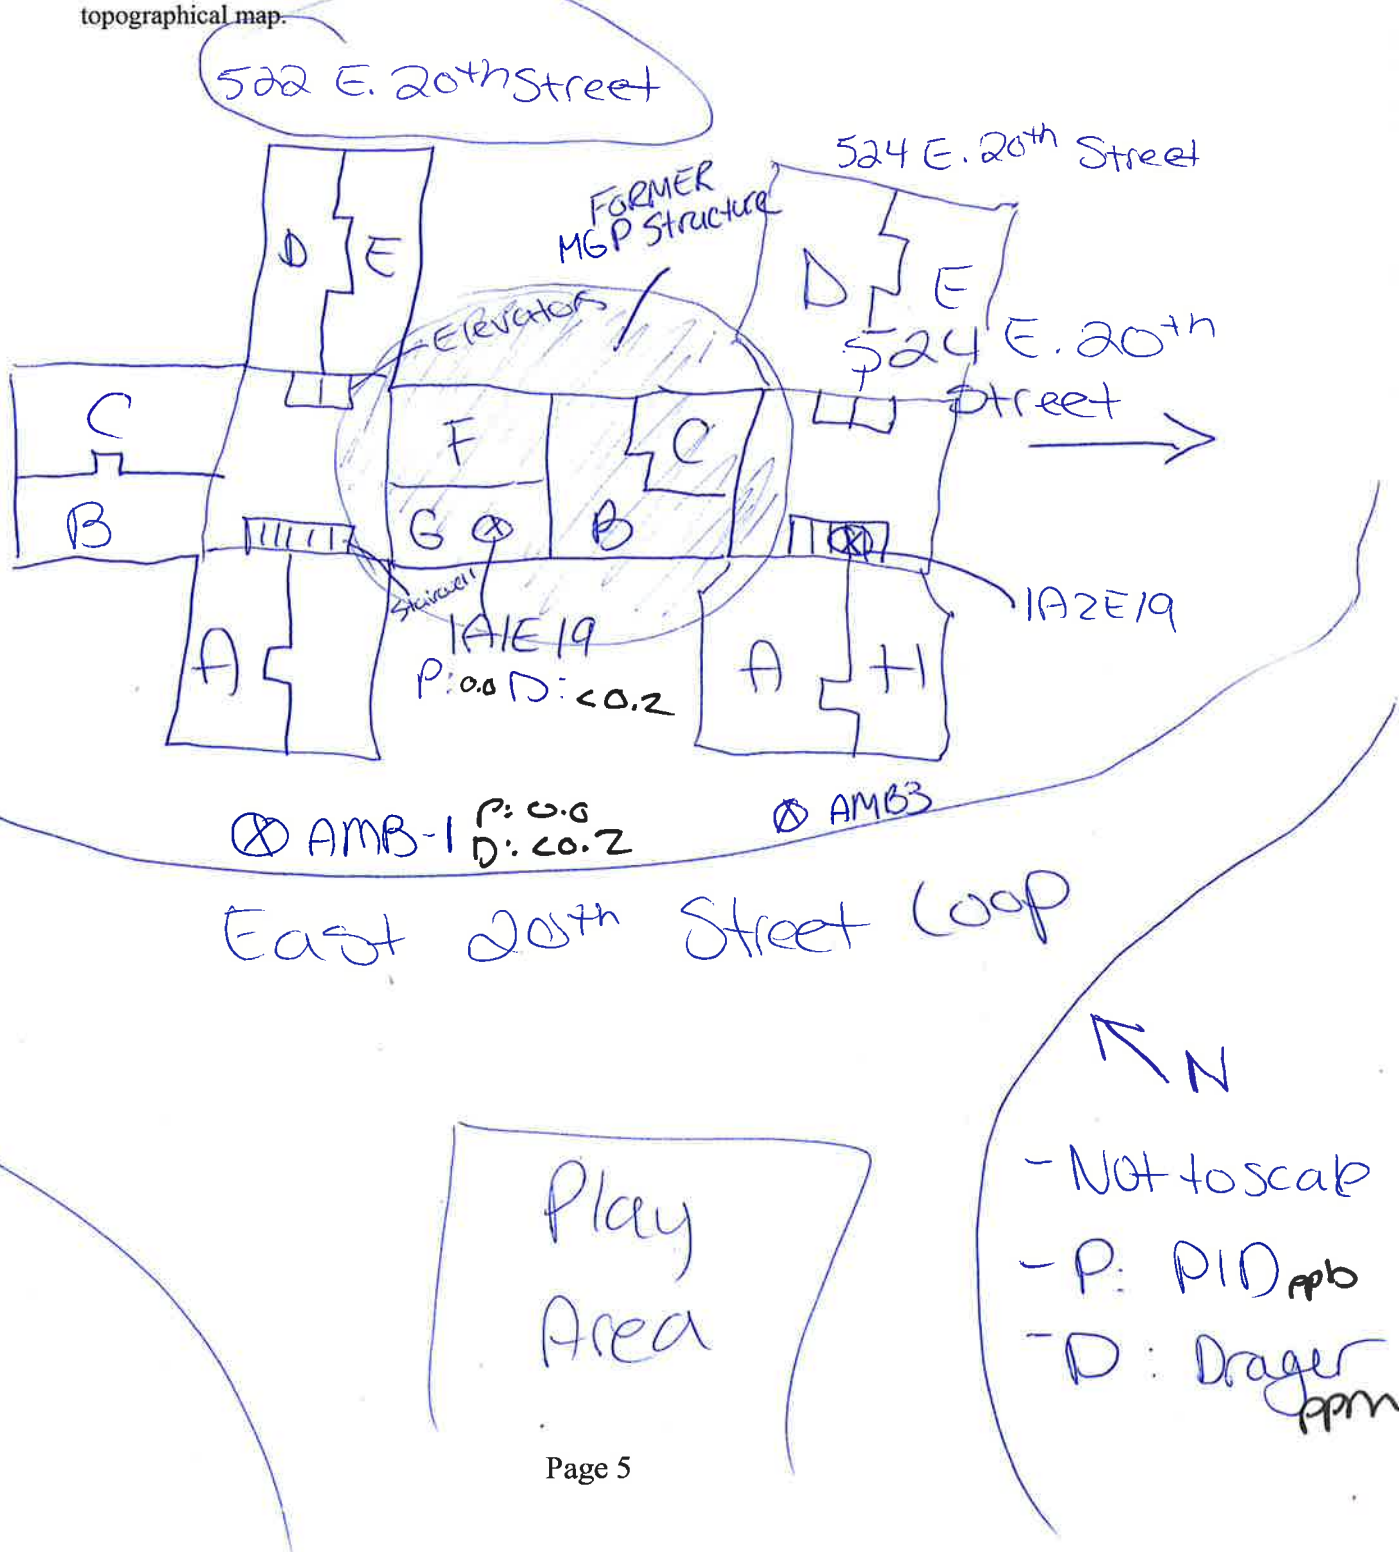 topographical map.
522 E. 20th Street
524 E. 20th Street
FORMER
MGP Structure
D
E
D
E
Elevators
524 E. 20th
Street
C
F
C
B
G
B
Stairwell
1A1E19
P: 0.0 D: <0.2
1A2E19
A
A
H
AMB-1
P: 0.0
D: <0.2
AMB3
East 20th Street Loop
N
- Not to scale
- P: PID ppb
- D: Drager
ppm
Play
Area
Page 5